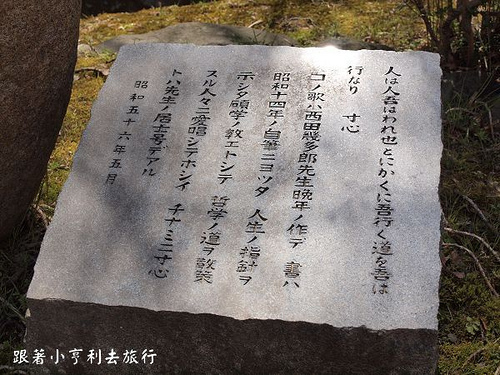 人は人吾はわれ也とにかくに吾行く道を吾は
行なり　寸心
コノ歌ハ西田幾多郎先生晩年ノ作デ　書ハ
昭和十四年ノ自筆ニヨッタ　人生ノ指針ヲ
示シタ碩学ノ教エトシテ　哲学ノ道ヲ散策
スル人々ニ愛唱シテホシイ　チナミニ寸心
トハ先生ノ居士号デアル
昭和五十六年五月
跟著小亨利去旅行